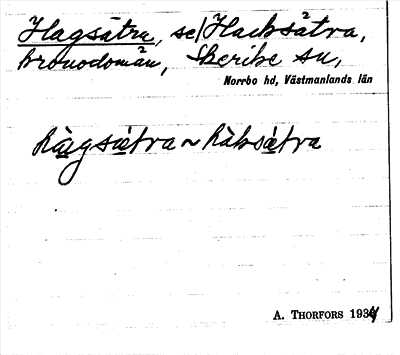 Hagsätra, se Hacksätra,
kronodomän, Skerike sn,
Norrbo hd, Västmanlands län
hàgsǽtra ~ hàksǽtra
A. THORFORS 1934